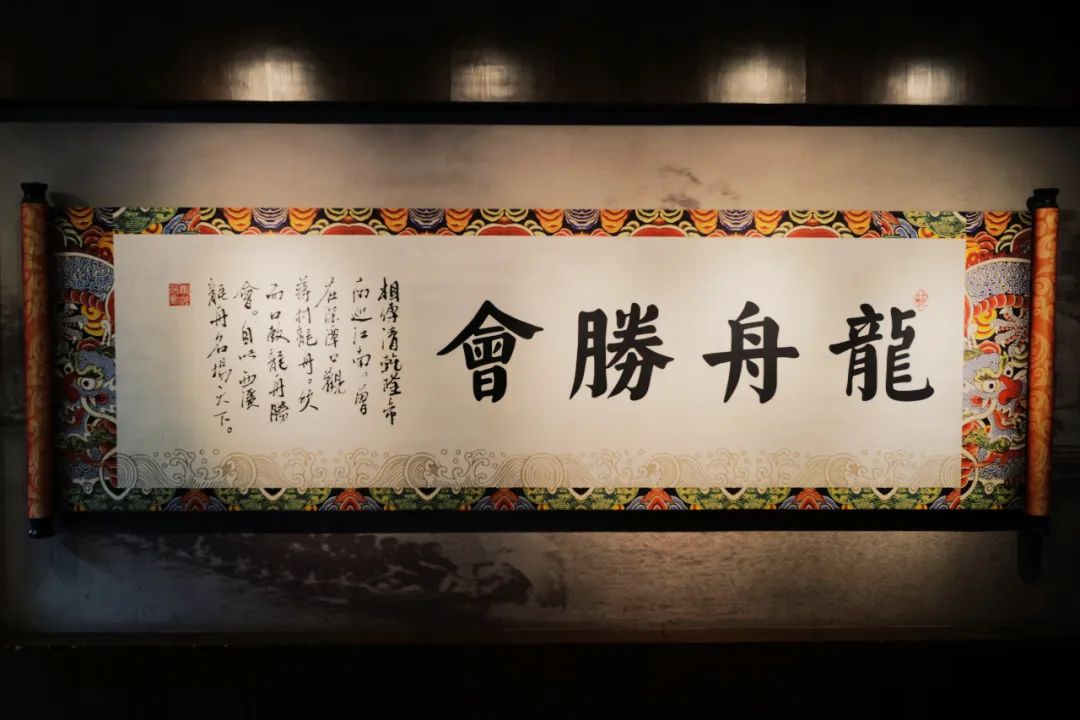 龍舟勝會
相傳清乾隆帝
南巡江南。曾
在深潭口觀
蔣村龍舟。失
而口敕龍舟勝
會。自此西溪
龍舟名揚天下。